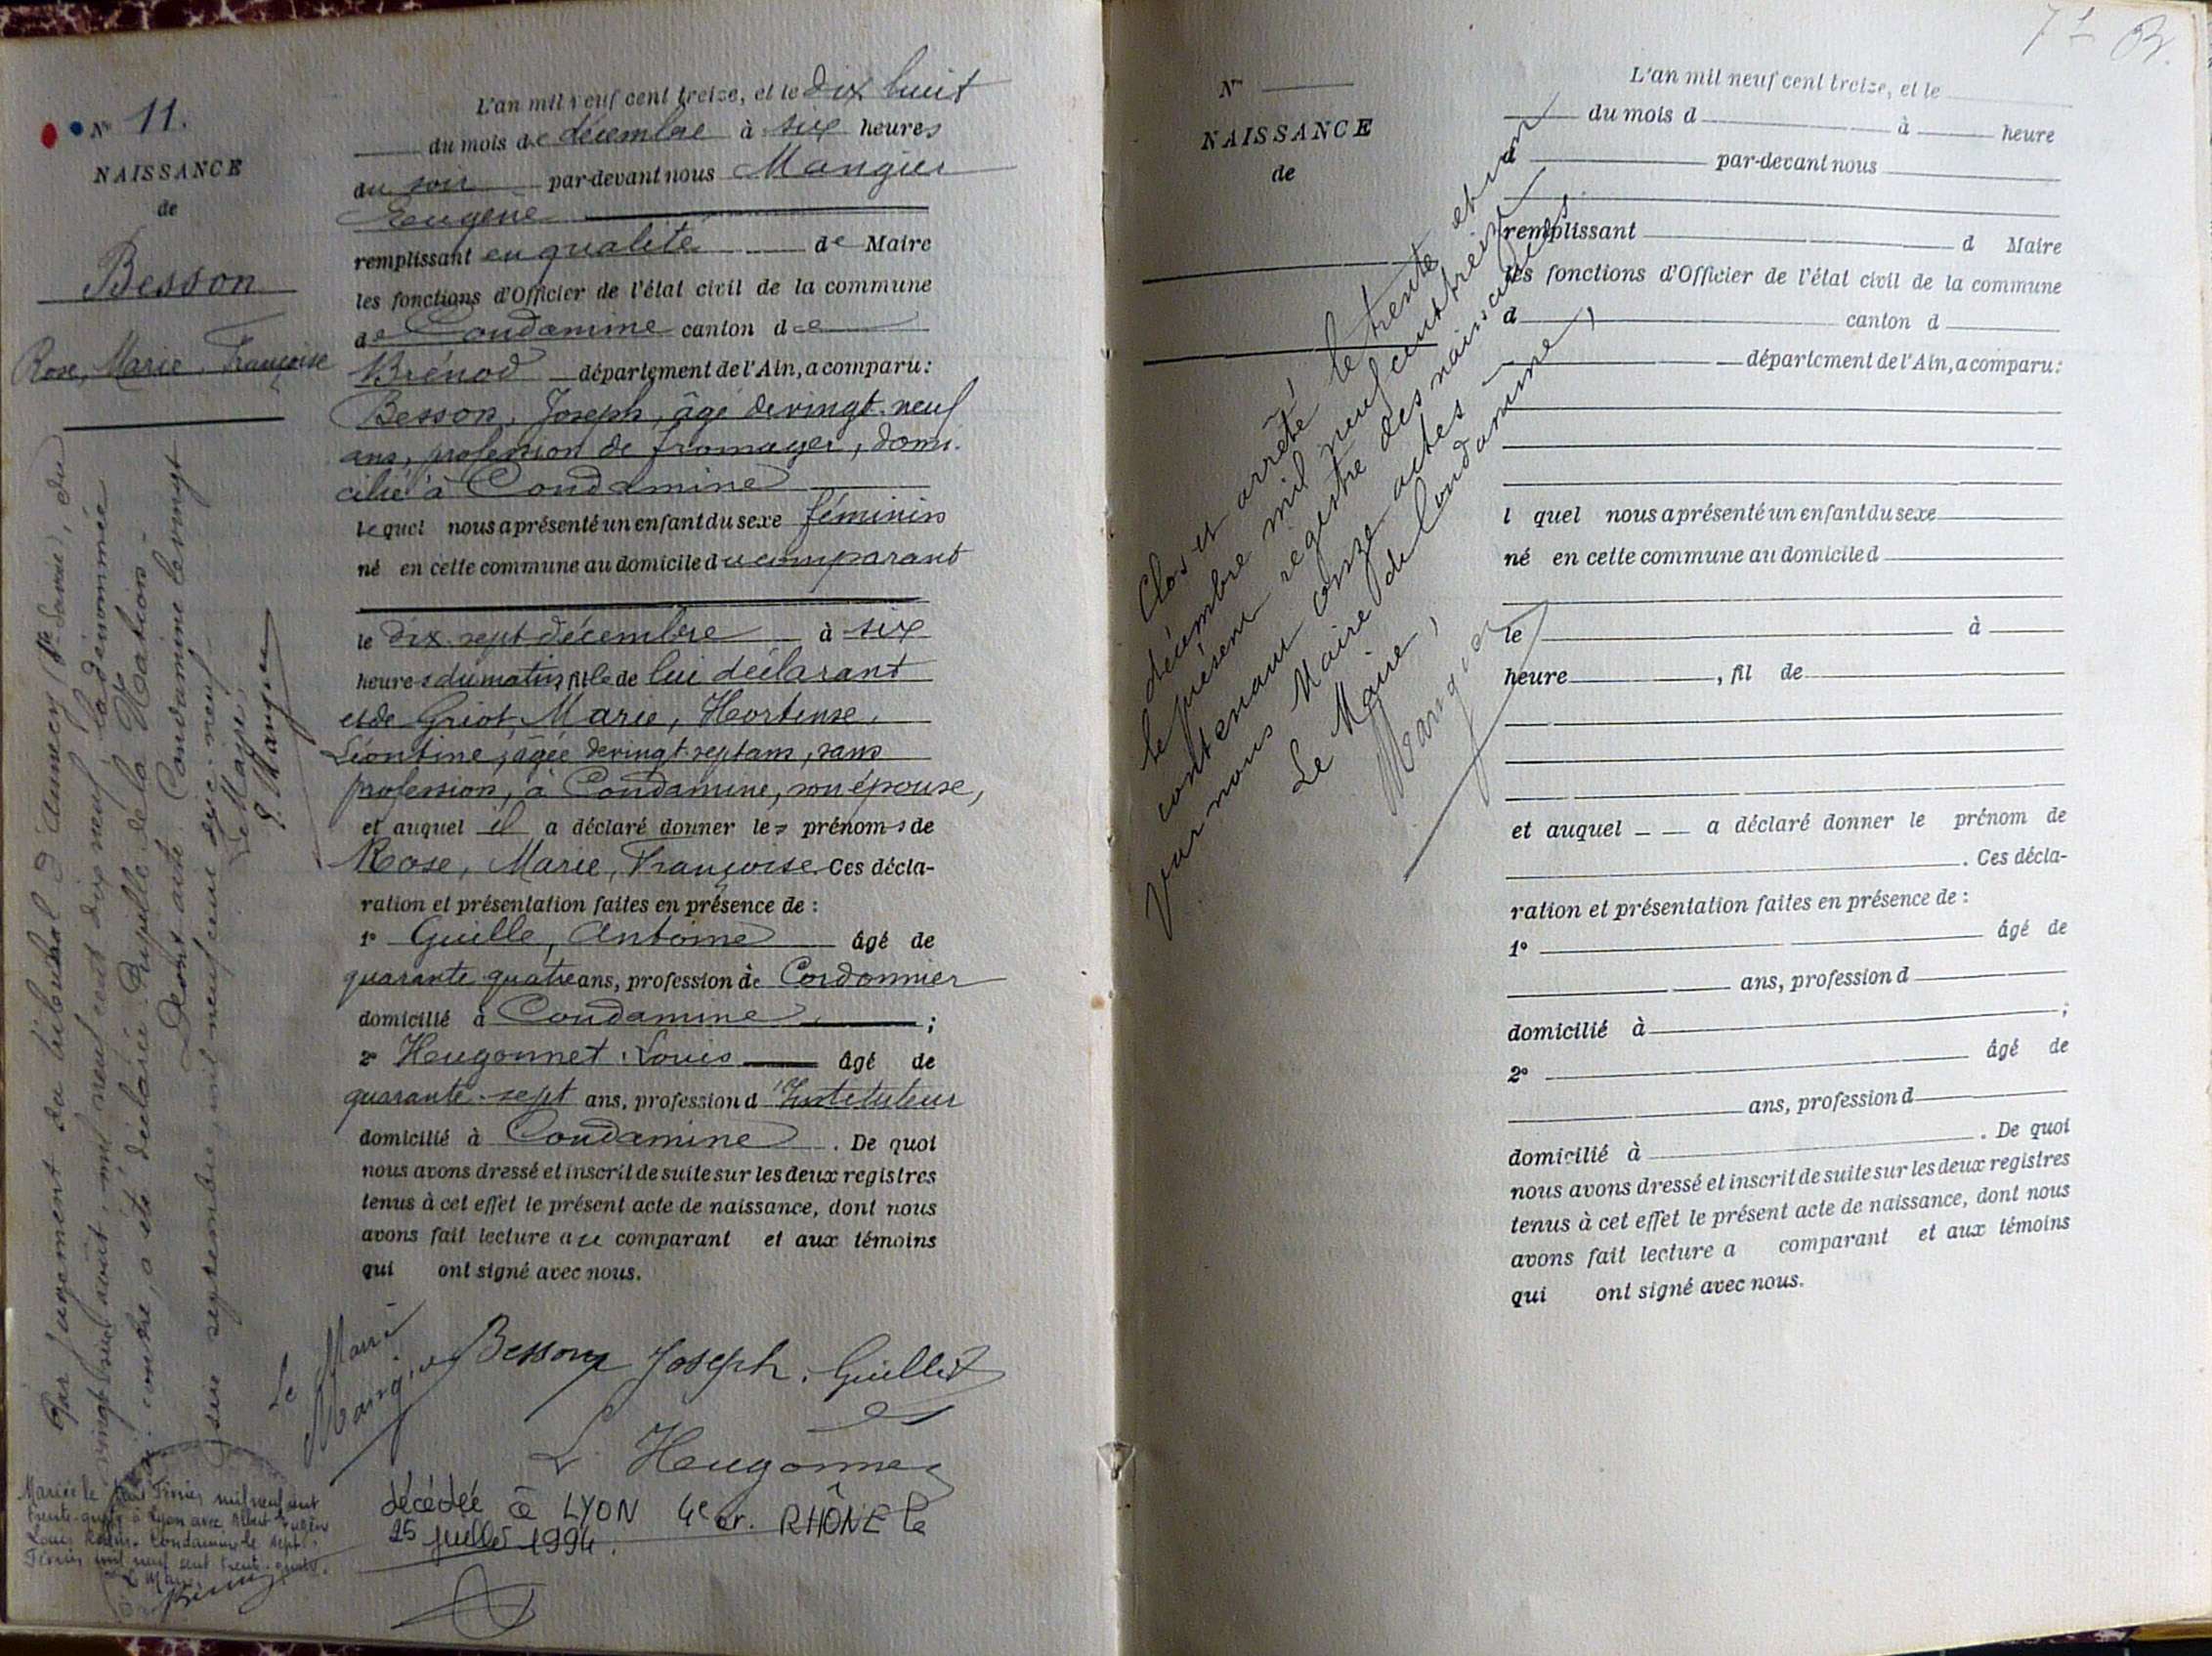 Nº 11.
NAISSANCE
de
Besson
Rose, Marie, Françoise
L'an mil neuf cent treize, et le dix huit
du mois de décembre à six heures
du soir par-devant nous Mangier
Eugène
remplissant en qualité de Maire
les fonctions d'Officier de l'état civil de la commune
de Condamine canton de
Brénod département de l'Ain, a comparu:
Besson, Joseph, âgé de vingt-neuf
ans, profession de fromager, domi-
cilié à Condamine
lequel nous a présenté un enfant du sexe féminin
né en cette commune au domicile du comparant
le dix-sept décembre à six
heures du matin, fille de lui déclarant
et de Griot, Marie, Hortense,
Léontine, âgée de vingt-sept ans, sans
profession, à Condamine, son épouse,
et auquel il a déclaré donner les prénoms de
Rose, Marie, Françoise. Ces décla-
ration et présentation faites en présence de :
1º Guille, Antoine âgé de
quarante quatre ans, profession de Cordonnier
domicilié à Condamine ;
2º Heugonnet, Louis âgé de
quarante-sept ans, profession d'Instituteur
domicilié à Condamine. De quoi
nous avons dressé et inscrit de suite sur les deux registres
tenus à cet effet le présent acte de naissance, dont nous
avons fait lecture au comparant et aux témoins
qui ont signé avec nous.
Le Maire
Mangier
Besson Joseph. Guillet
L Heugonnet
décédée à LYON 4e ar. RHÔNE le
25 juillet 1994.
Par jugement du tribunal d'Annecy (Hte Savoie), du
vingt six août, mil neuf cent dix neuf, la dénommée
ci-contre, a été déclarée Pupille de la Nation.
Dont acte. Condamine le vingt
six septembre, mil neuf cent dix-neuf
Le Maire,
E. Mangier
Mariée le Février mil neuf cent
trente-quatre à Lyon avec Albert Eugène
Louis Condamine le sept
Février mil neuf cent trente-quatre.
Le Maire,
Nº
NAISSANCE
de
Clos et arrêté, le trente et un
décembre mil neuf cent treize
le présent registre des naissances
contenant onze actes
par nous Maire de Condamine,
Le Maire,
Mangier
L'an mil neuf cent treize, et le
du mois d à heure
d par-devant nous
remplissant d Maire
les fonctions d'Officier de l'état civil de la commune
d canton d
département de l'Ain, a comparu:
l quel nous a présenté un enfant du sexe
né en cette commune au domicile d
le à
heure , fil de
et auquel a déclaré donner le prénom de
. Ces décla-
ration et présentation faites en présence de :
1º âgé de
ans, profession d
domicilié à ;
2º âgé de
ans, profession d
domicilié à . De quoi
nous avons dressé et inscrit de suite sur les deux registres
tenus à cet effet le présent acte de naissance, dont nous
avons fait lecture a comparant et aux témoins
qui ont signé avec nous.